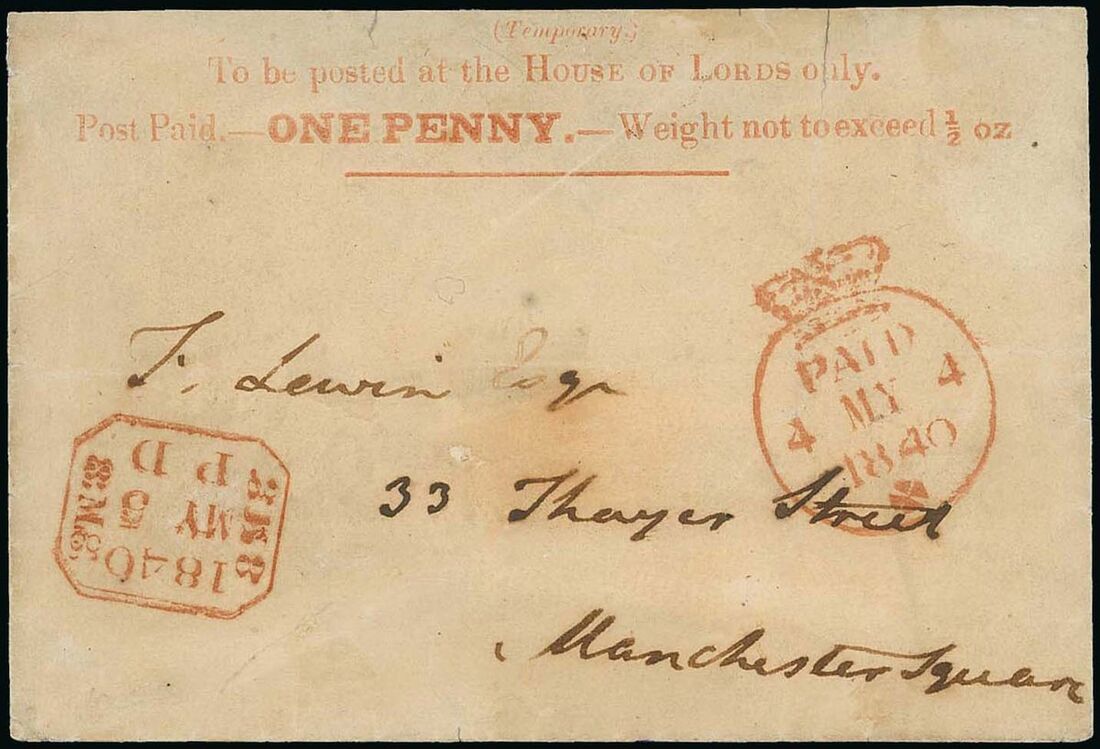 (Temporary.)
To be posted at the HOUSE OF LORDS only.
Post Paid.—ONE PENNY.—Weight not to exceed ½ oz
PAID
4 MY 4
1840
T. Lewin Esqr
33 Thayer Street
Manchester Square
P D
MY 5
1840